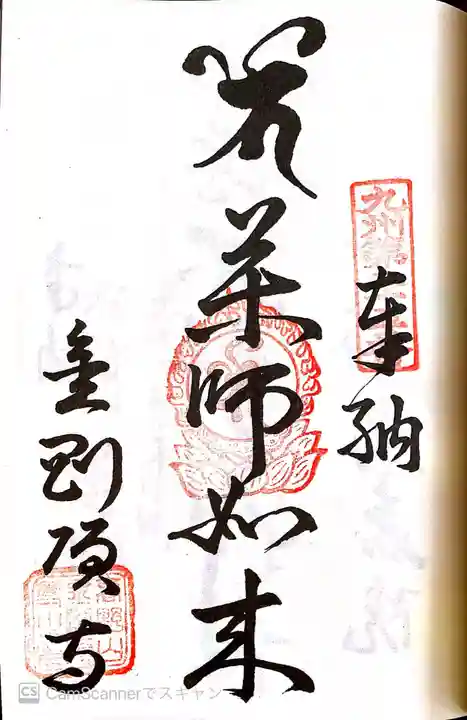 奉納
薬師如来
金剛頂寺
九州
CS CamScannerでスキャン